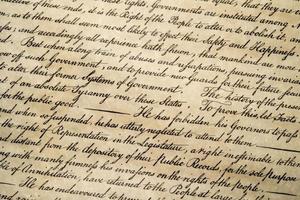 these ends, it is the Right of the People to alter or to abolish it, and
as to them shall seem most likely to effect their Safety and Happiness.
and accordingly all experience hath shewn, that mankind are
But when a long train of abuses and usurpations, pursuing invariably
off such Government, and to provide new Guards for their future
to alter their former Systems of Government. The history of the present
of an absolute Tyranny over these States. To prove this, let Facts
for the public good. He has forbidden his Governors to pass
and when so suspended, he has utterly neglected to attend to them.
the right of Representation in the Legislature, a right inestimable to
distant from the depository of their Public Records, for the sole purpose
with manly firmness his invasions on the rights of the people.
of Annihilation, have returned to the People at large
He has endeavoured to prevent